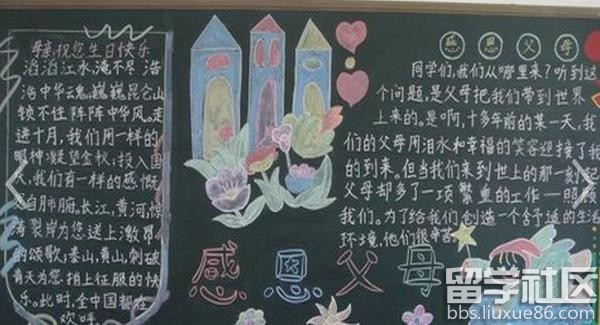 母亲,祝您生日快乐
滔滔江水,淹不尽 浩
浩中华魂,巍巍昆仑山
锁不住 阵阵中华风。走
进十月,我们用一样的
眼神凝望金秋;投入国
我们有一样的感慨
自肺腑。长江,黄河,惊
涛裂岸为您送上激昂
的颂歌,泰山,黄山,刺破
青天为您捎上征服的快
乐。此时,全中国都在
欢呼。
感恩父母
同学们,我们从哪里来?听到这
个问题,是父母把我们带到世界
上来的。是啊,十多年前的某一天,我
们的父母用泪水和幸福的笑容迎接了我们
的到来。但当我们来到世上的那一刻起
父母却多了一项繁重的工作—照顾
我们。为了给我们创造一个舒适的生活
环境,他们很辛苦。
感恩父母
留学社区
bbs.liuxue86.com